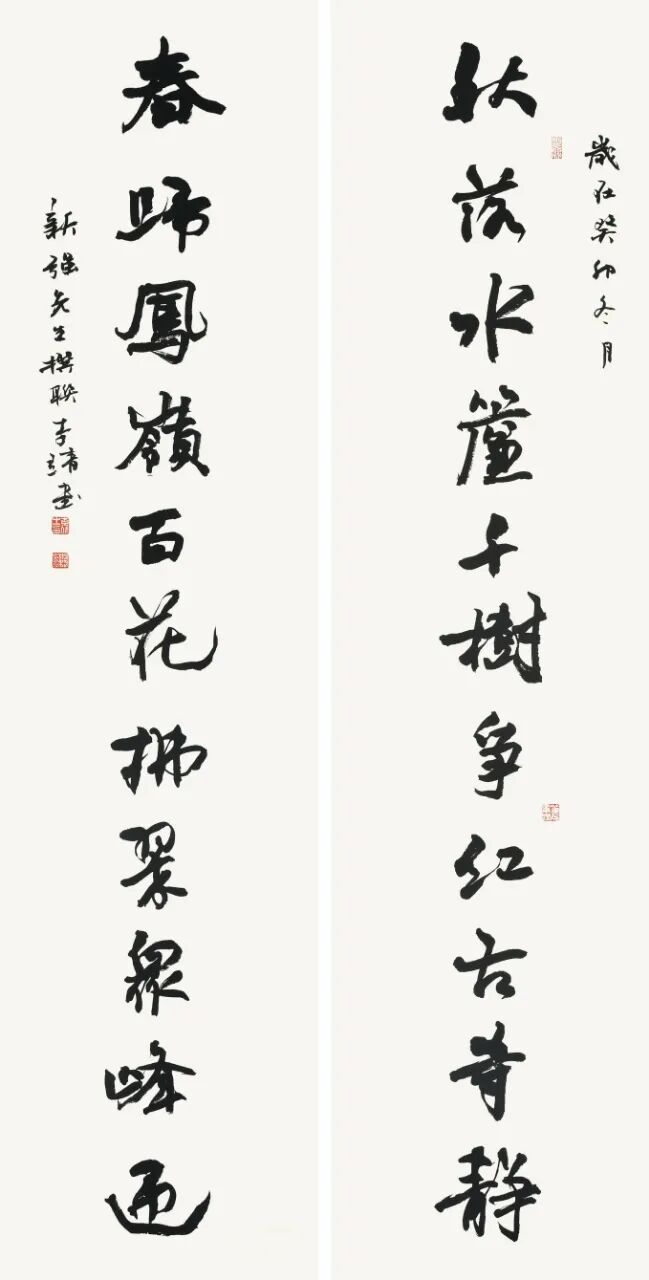 秋落水簾千樹爭紅古寺靜
歲在癸卯冬月
春歸鳳嶺百花拂翠眾峰迎
新強先生撰聯李靖書